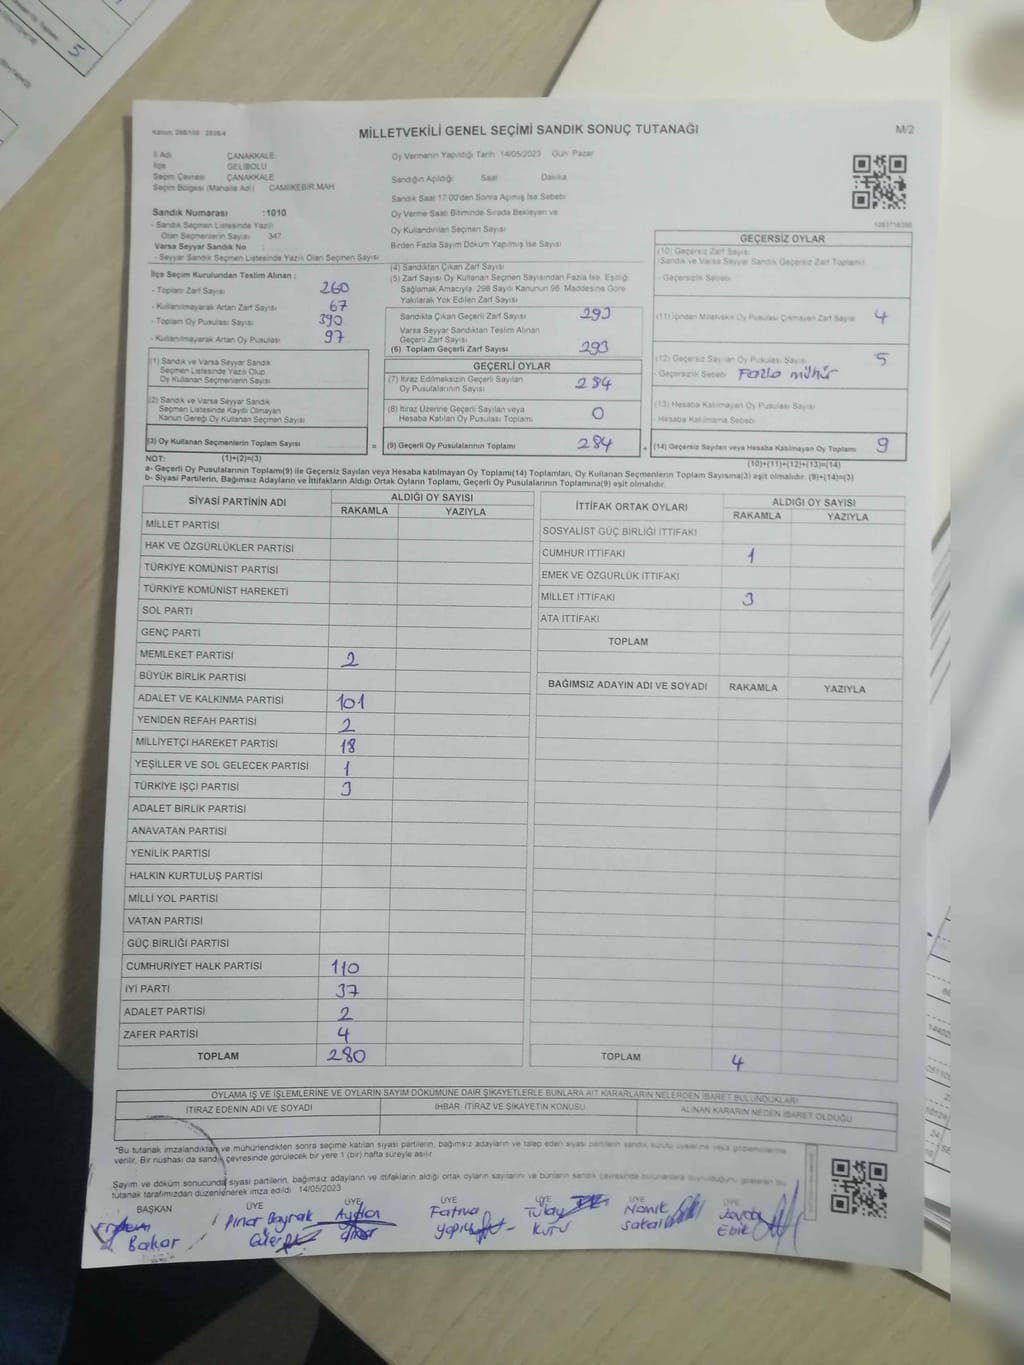 MİLLETVEKİLİ GENEL SEÇİMİ SANDIK SONUÇ TUTANAĞI
M/2
İl Adı ÇANAKKALE
İlçe GELİBOLU
Seçim Çevresi ÇANAKKALE
Seçim Bölgesi (Mahalle Adı) CAMİİKEBİR MAH.
Sandık Numarası :1010
- Sandık Seçmen Listesinde Yazılı
Olan Seçmenlerin Sayısı 347
Varsa Seyyar Sandık No :
- Seyyar Sandık Seçmen Listesinde Yazılı Olan Seçmen Sayısı
Oy Vermenin Yapıldığı Tarih 14/05/2023 Gün Pazar
Sandığın Açıldığı Saat Dakika
Sandık Saat 17.00'den Sonra Açılmış İse Sebebi
Oy Verme Saati Bitiminde Sırada Bekleyen ve
Oy Kullandırılan Seçmen Sayısı
Birden Fazla Sayım Döküm Yapılmış İse Sayısı
İlçe Seçim Kurulundan Teslim Alınan ;
- Toplam Zarf Sayısı 260
- Kullanılmayarak Artan Zarf Sayısı 67
- Toplam Oy Pusulası Sayısı 390
- Kullanılmayarak Artan Oy Pusulası 97
(1) Sandık ve Varsa Seyyar Sandık
Seçmen Listesinde Yazılı Olup
Oy Kullanan Seçmenlerin Sayısı
(2) Sandık ve Varsa Seyyar Sandık
Seçmen Listesinde Kayıtlı Olmayan
Kanun Gereği Oy Kullanan Seçmen Sayısı
(3) Oy Kullanan Seçmenlerin Toplam Sayısı
(4) Sandıktan Çıkan Zarf Sayısı
(5) Zarf Sayısı Oy Kullanan Seçmen Sayısından Fazla İse, Eşitliği
Sağlamak Amacıyla, 298 Sayılı Kanunun 98. Maddesine Göre
Yakılarak Yok Edilen Zarf Sayısı
Sandıkta Çıkan Geçerli Zarf Sayısı 293
Varsa Seyyar Sandıktan Teslim Alınan
Geçerli Zarf Sayısı
(6) Toplam Geçerli Zarf Sayısı 293
GEÇERLİ OYLAR
(7) İtiraz Edilmeksizin Geçerli Sayılan
Oy Pusulalarının Sayısı 284
(8) İtiraz Üzerine Geçerli Sayılan veya
Hesaba Katılan Oy Pusulası Toplamı 0
= (9) Geçerli Oy Pusulalarının Toplamı 284
GEÇERSİZ OYLAR
(10) Geçersiz Zarf Sayısı
(Sandık ve Varsa Seyyar Sandık Geçersiz Zarf Toplamı)
- Geçersizlik Sebebi
(11) İçinden Milletvekili Oy Pusulası Çıkmayan Zarf Sayısı 4
(12) Geçersiz Sayılan Oy Pusulası Sayısı 5
- Geçersizlik Sebebi Fazla mühür
(13) Hesaba Katılmayan Oy Pusulası Sayısı
- Hesaba Katılmama Sebebi
+ (14) Geçersiz Sayılan veya Hesaba Katılmayan Oy Toplamı 9
NOT: (1)+(2)=(3)
(10)+(11)+(12)+(13)=(14)
a- Geçerli Oy Pusulalarının Toplamı(9) ile Geçersiz Sayılan veya Hesaba katılmayan Oy Toplamı(14) Toplamları, Oy Kullanan Seçmenlerin Toplam Sayısına(3) eşit olmalıdır. (9)+(14)=(3)
b- Siyasi Partilerin, Bağımsız Adayların ve İttifakların Aldığı Ortak Oyların Toplamı, Geçerli Oy Pusulalarının Toplamına(9) eşit olmalıdır.
SİYASİ PARTİNİN ADI ALDIĞI OY SAYISI
RAKAMLA YAZIYLA
MİLLET PARTİSİ
HAK VE ÖZGÜRLÜKLER PARTİSİ
TÜRKİYE KOMÜNİST PARTİSİ
TÜRKİYE KOMÜNİST HAREKETİ
SOL PARTİ
GENÇ PARTİ
MEMLEKET PARTİSİ 2
BÜYÜK BİRLİK PARTİSİ
ADALET VE KALKINMA PARTİSİ 101
YENİDEN REFAH PARTİSİ 2
MİLLİYETÇİ HAREKET PARTİSİ 18
YEŞİLLER VE SOL GELECEK PARTİSİ 1
TÜRKİYE İŞÇİ PARTİSİ 3
ADALET BİRLİK PARTİSİ
ANAVATAN PARTİSİ
YENİLİK PARTİSİ
HALKIN KURTULUŞ PARTİSİ
MİLLİ YOL PARTİSİ
VATAN PARTİSİ
GÜÇ BİRLİĞİ PARTİSİ
CUMHURİYET HALK PARTİSİ 110
İYİ PARTİ 37
ADALET PARTİSİ 2
ZAFER PARTİSİ 4
TOPLAM 280
İTTİFAK ORTAK OYLARI ALDIĞI OY SAYISI
RAKAMLA YAZIYLA
SOSYALİST GÜÇ BİRLİĞİ İTTİFAKI
CUMHUR İTTİFAKI 1
EMEK VE ÖZGÜRLÜK İTTİFAKI
MİLLET İTTİFAKI 3
ATA İTTİFAKI
TOPLAM
BAĞIMSIZ ADAYIN ADI VE SOYADI RAKAMLA YAZIYLA
TOPLAM 4
OYLAMA İŞ VE İŞLEMLERİNE VE OYLARIN SAYIM DÖKÜMÜNE DAİR ŞİKAYETLERLE BUNLARA AİT KARARLARIN NELERDEN İBARET BULUNDUKLARI
İTİRAZ EDENİN ADI VE SOYADI İHBAR, İTİRAZ VE ŞİKAYETİN KONUSU ALINAN KARARIN NEDEN İBARET OLDUĞU
*Bu tutanak imzalandıktan ve mühürlendikten sonra seçime katılan siyasi partilerin, bağımsız adayların ve talep eden siyasi partilerin sandık kurulu üyelerine veya gözlemcilerine
verilir. Bir nüshası da sandık çevresinde görülecek bir yere 1 (bir) hafta süreyle asılır.
Sayım ve döküm sonucunda siyasi partilerin, bağımsız adayların ve ittifakların aldığı ortak oyların sayılarını ve bunların sandık çevresinde bulunanlara duyurulduğunu gösteren bu
tutanak tarafımızdan düzenlenerek imza edildi. 14/05/2023
BAŞKAN ÜYE ÜYE ÜYE ÜYE ÜYE ÜYE
Bakar
Pınar Bayrak
Güler
Fatma
Tülay
KUTU
Namık
Sakal